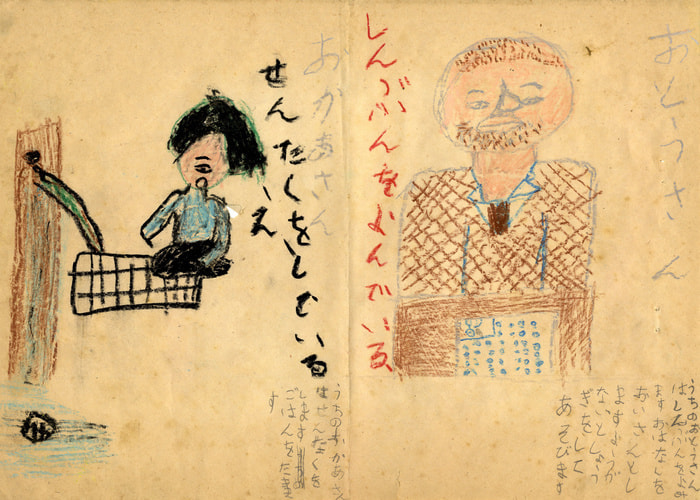 おとうさん
しんぶんをよんでいる
うちのおとうさん
はしんぶんをよみ
ますおはなしを
おいさんとし
ますようが
ないとしょう
ぎをして
あそびます
おかあさん
せんたくをしている
え
うちのおかあさん
はせんたくを
します
ごはんをたきま
す